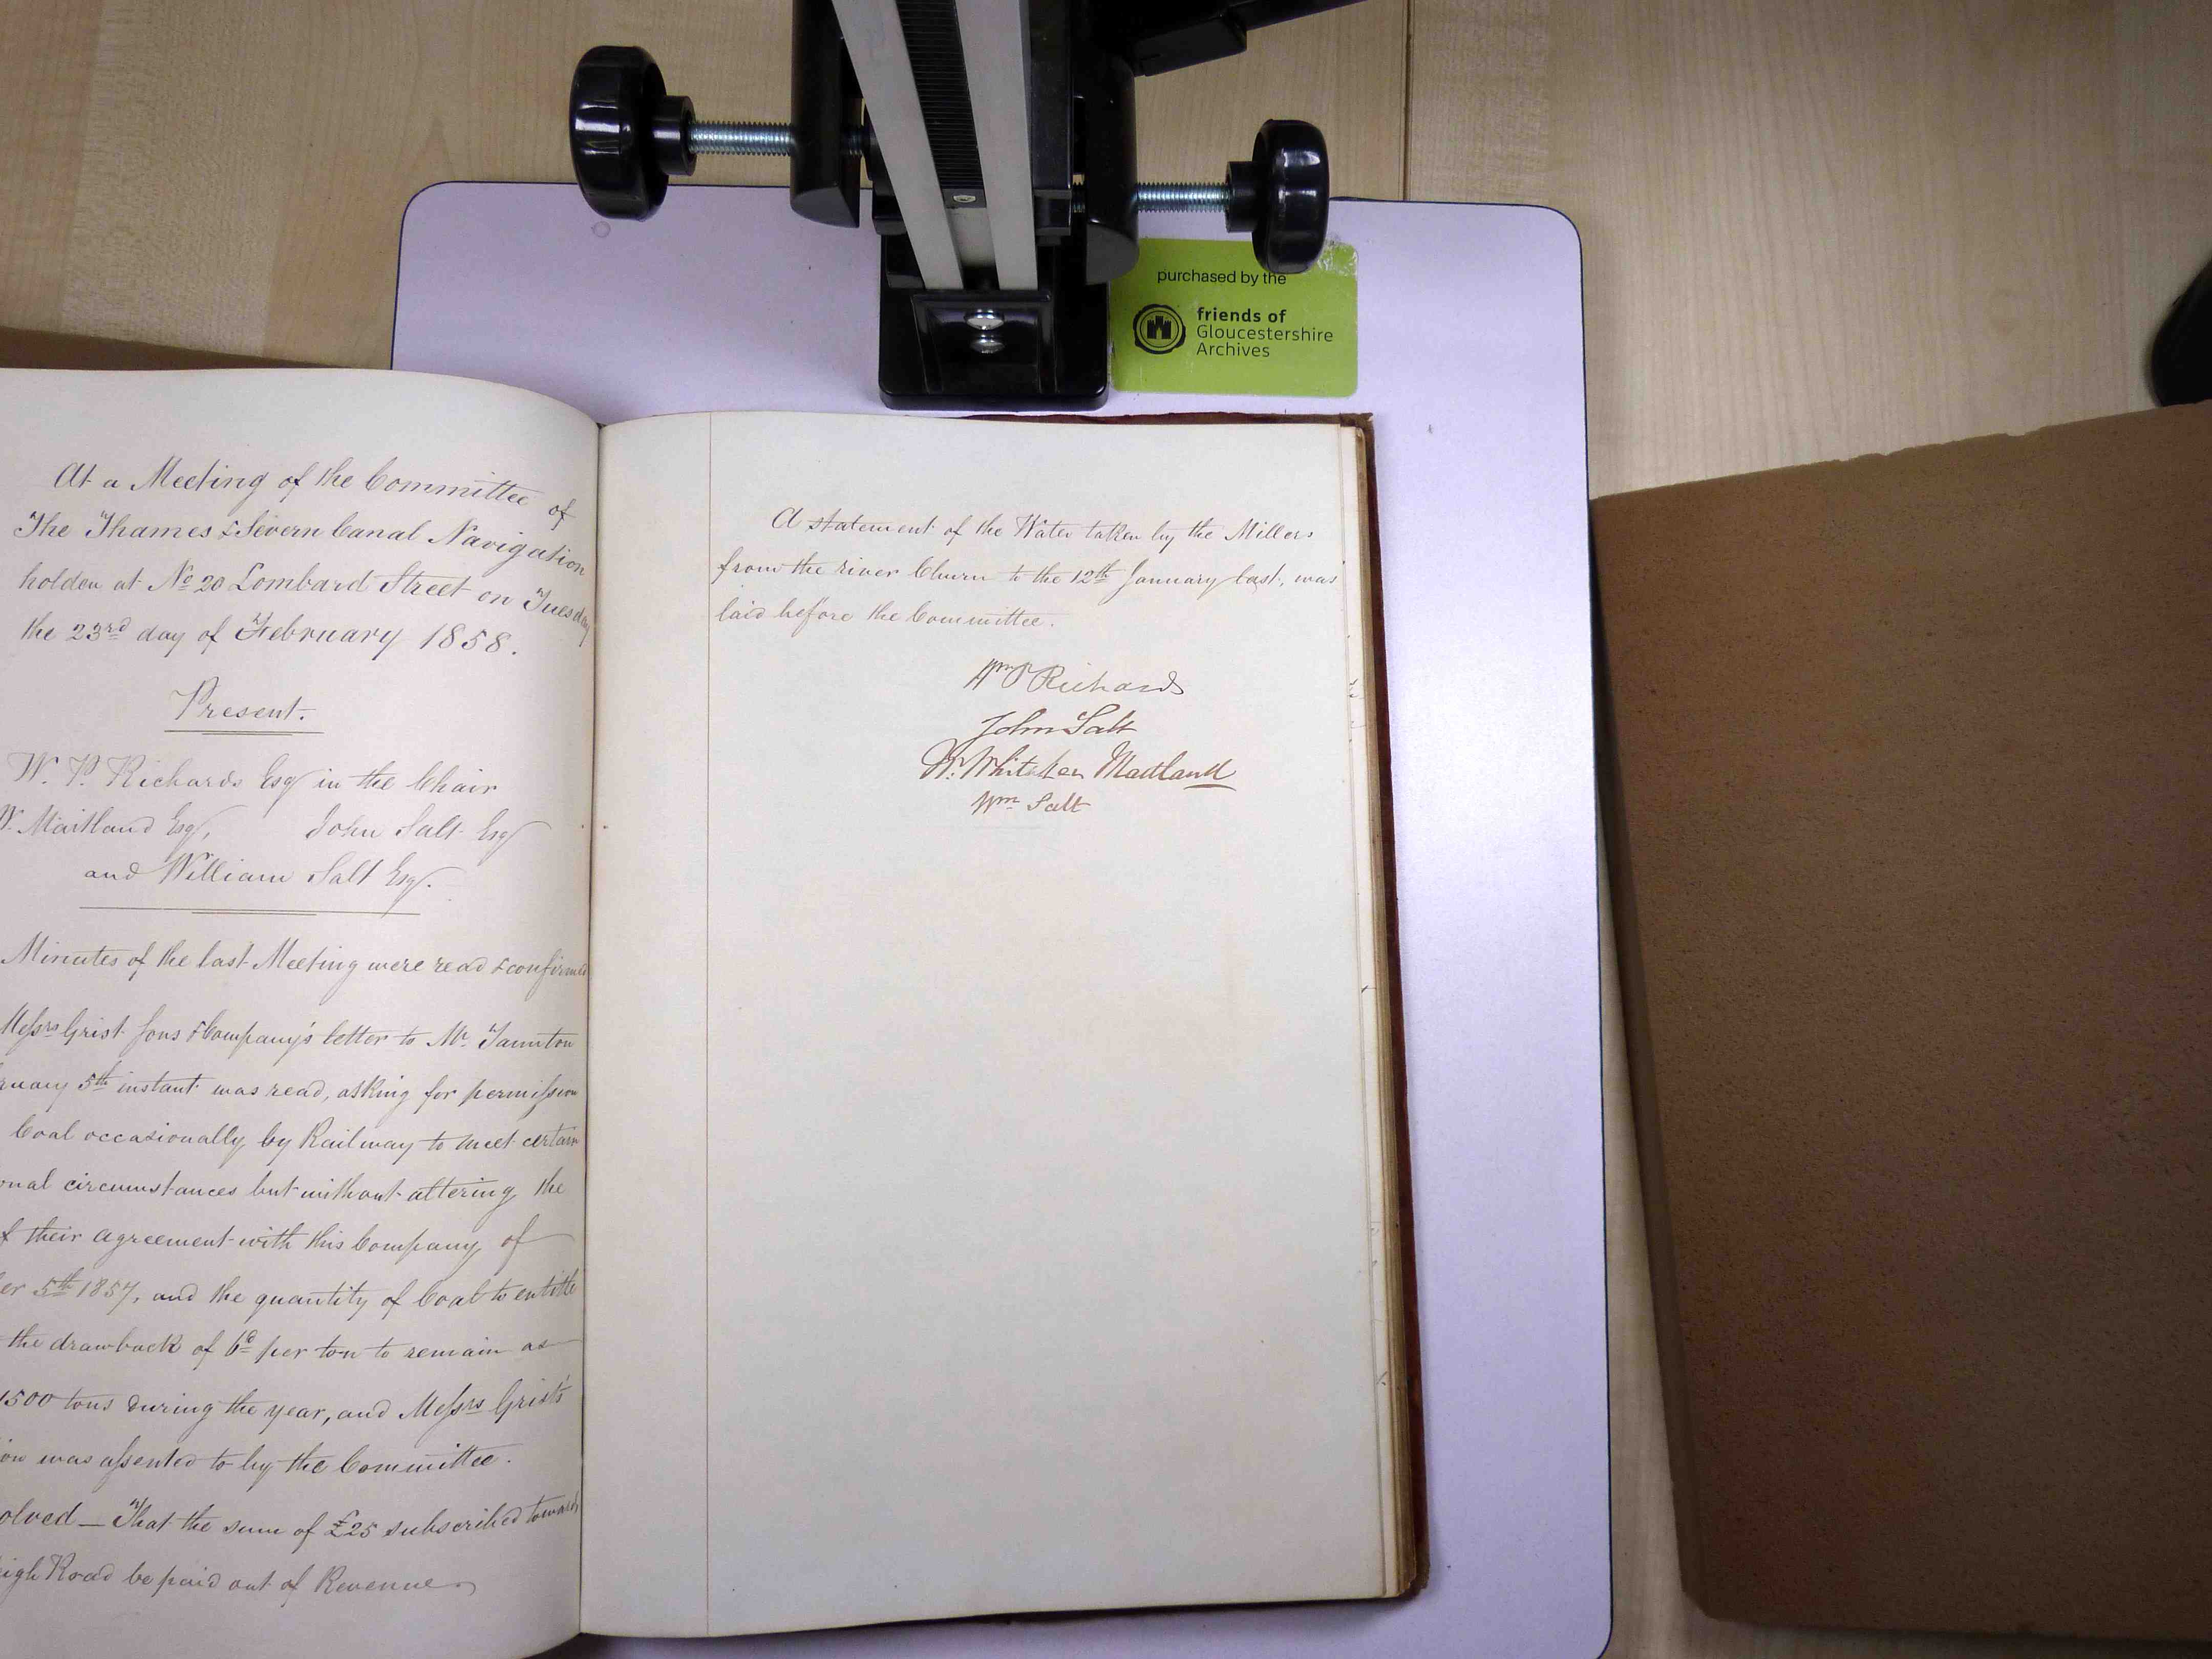 At a Meeting of the Committee of
The Thames & Severn Canal Navigation
holden at No 20 Lombard Street on Tuesday
the 23rd day of February 1858.
Present.
W. P. Richards Esq in the Chair
W. Maitland Esq, John Salt Esq
and William Salt Esq.
Minutes of the last Meeting were read & confirmed
Messrs Grist Sons & Company's letter to Mr. Taunton
5th instant was read, asking for permission
Coal occasionally by Railway to meet certain
circumstances but without altering the
their agreement with this Company of
5th 1857, and the quantity of Coal to entitle
the drawback of 6d per ton to remain as
1500 tons during the year, and Messrs Grist's
was assented to by the Committee.
olved — That the sum of £25 subscribed towards
Road be paid out of Revenue
purchased by the
friends of
Gloucestershire
Archives
A statement of the Water taken by the Millers
from the river Churn to the 12th January last, was
laid before the Committee.
Wm P Richards
John Salt
W. Whitaker Maitland
Wm Salt